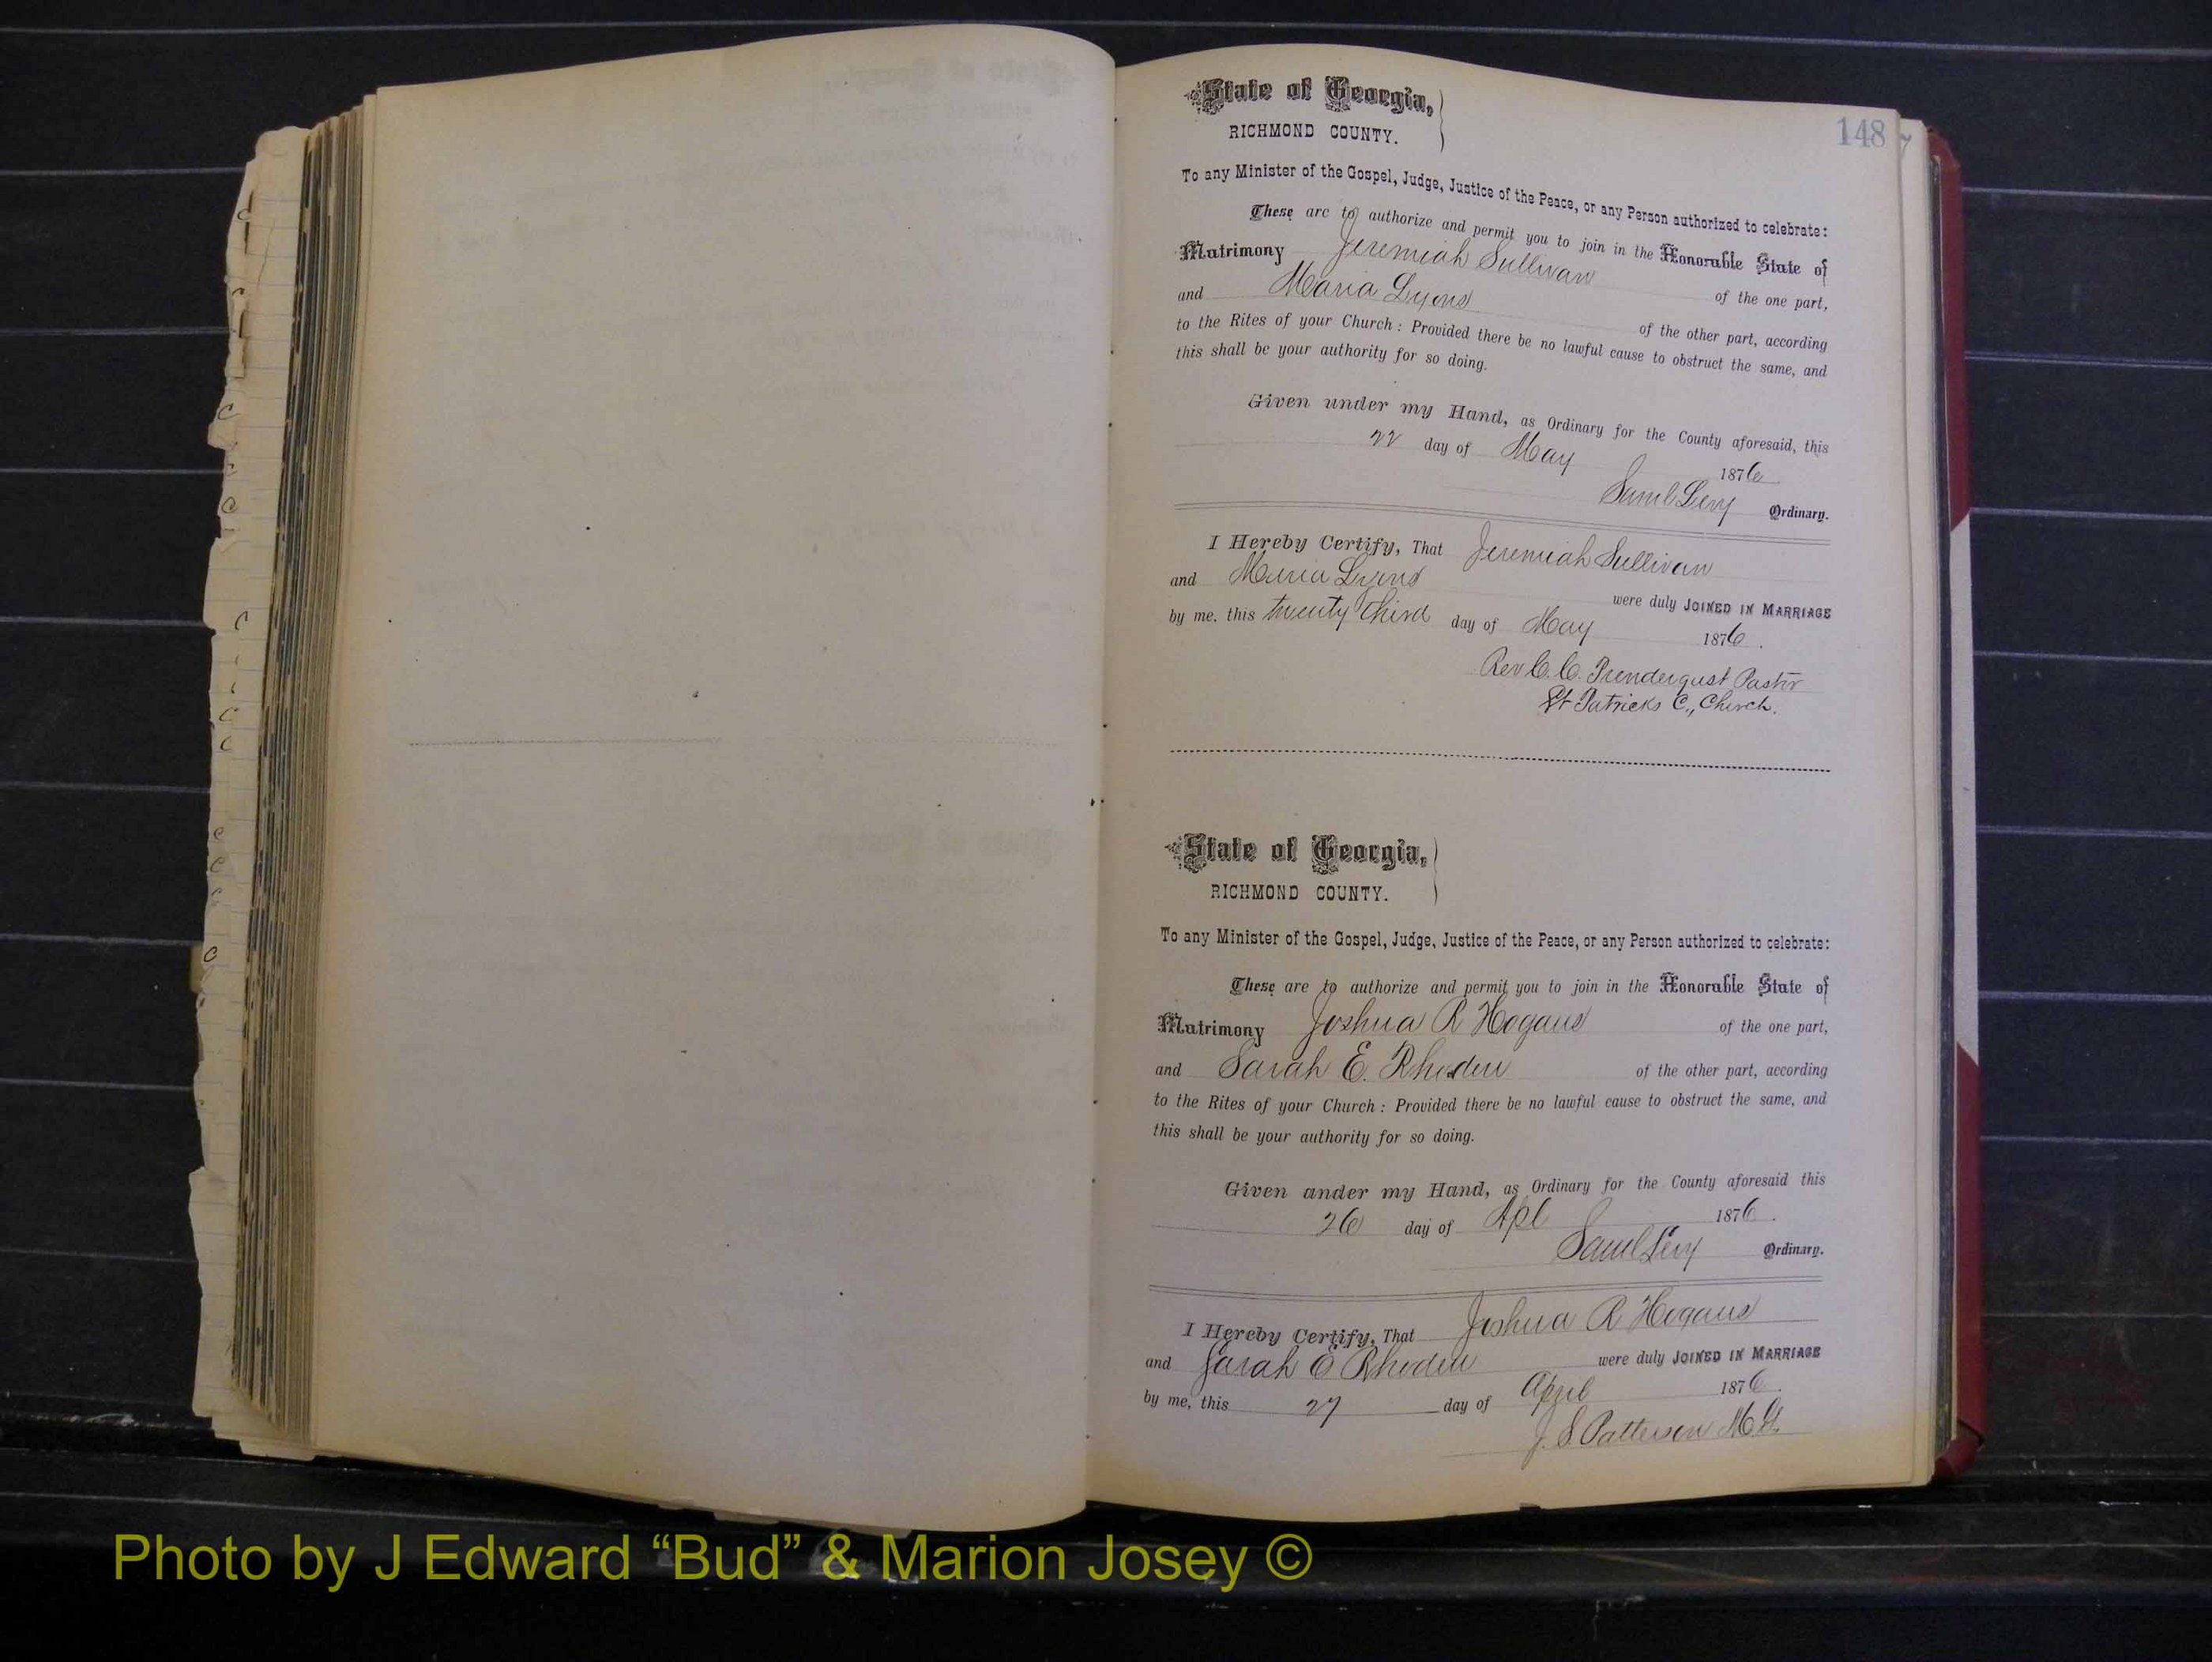 148
State of Georgia,
RICHMOND COUNTY.
To any Minister of the Gospel, Judge, Justice of the Peace, or any Person authorized to celebrate:
These are to authorize and permit you to join in the Honorable State of
Matrimony Jeremiah Sullivan of the one part,
and Maria Lyons of the other part, according
to the Rites of your Church: Provided there be no lawful cause to obstruct the same, and
this shall be your authority for so doing.
Given under my Hand, as Ordinary for the County aforesaid, this
22 day of May 1876
Saml Levy Ordinary.
I Hereby Certify, That Jeremiah Sullivan
and Maria Lyons were duly JOINED IN MARRIAGE
by me, this twenty third day of May 1876.
Rev C. C. Prendergast Pastor
St Patricks C., Church.
State of Georgia,
RICHMOND COUNTY.
To any Minister of the Gospel, Judge, Justice of the Peace, or any Person authorized to celebrate:
These are to authorize and permit you to join in the Honorable State of
Matrimony Joshua R Hogans of the one part,
and Sarah E. Rhoden of the other part, according
to the Rites of your Church: Provided there be no lawful cause to obstruct the same, and
this shall be your authority for so doing.
Given under my Hand, as Ordinary for the County aforesaid this
26 day of Apl 1876.
Saml Levy Ordinary.
I Hereby Certify, That Joshua R Hogans
and Sarah E Rhoden were duly JOINED IN MARRIAGE
by me, this 27 day of April 1876.
J. S. Patterson
Photo by J Edward “Bud” & Marion Josey ©